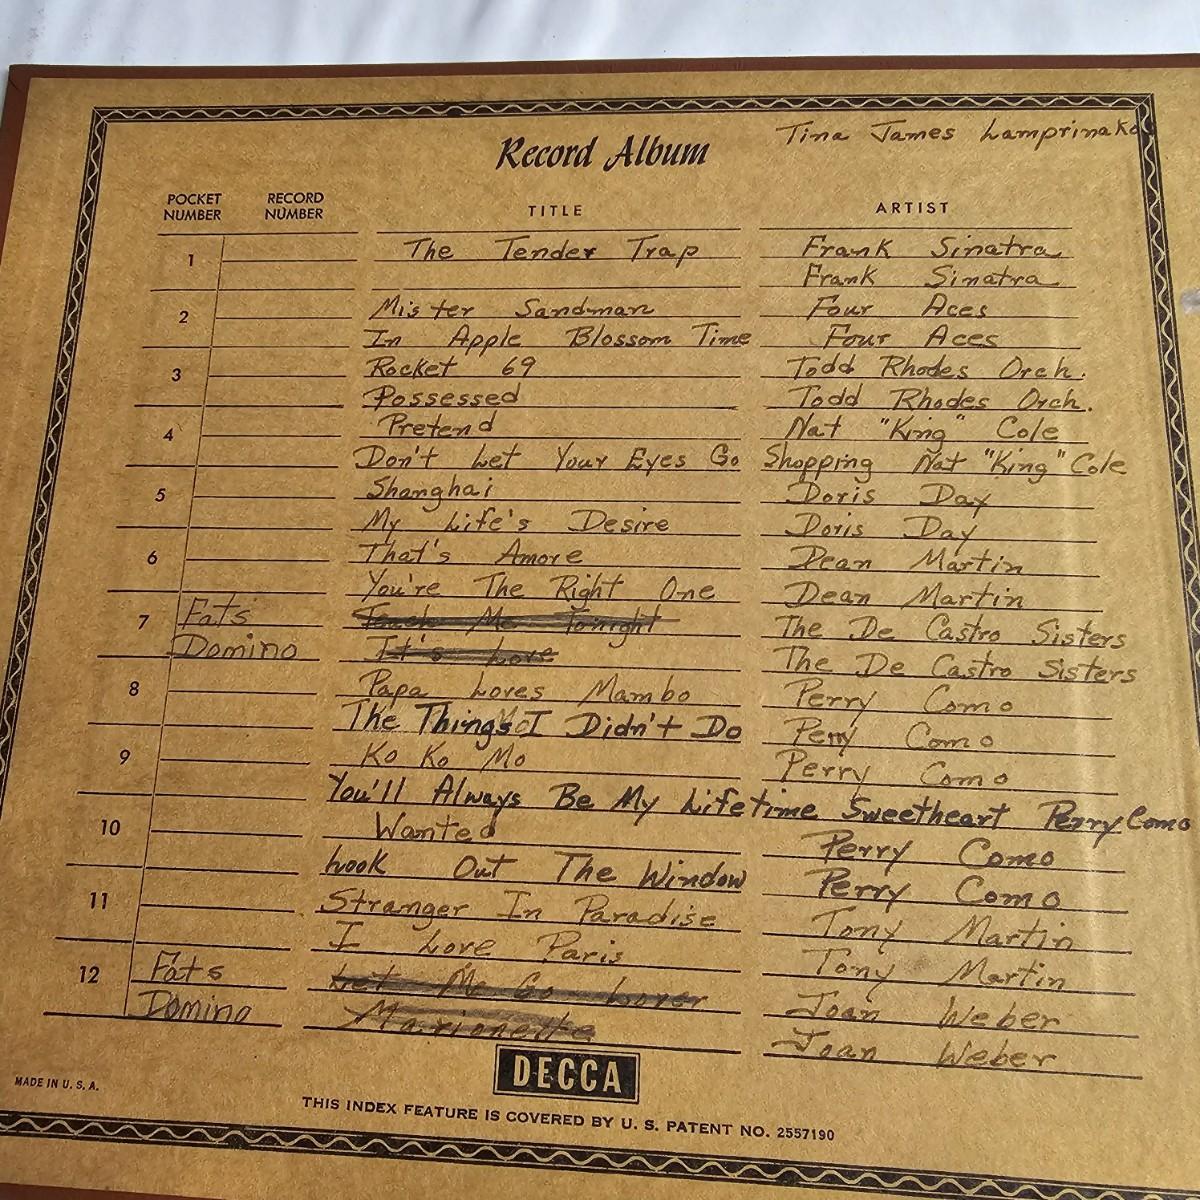 Tina James Lamprinako
Record Album
POCKET NUMBER RECORD NUMBER TITLE ARTIST
1 The Tender Trap Frank Sinatra
Frank Sinatra
2 Mister Sandman Four Aces
In Apple Blossom Time Four Aces
3 Rocket 69 Todd Rhodes Orch.
Possessed Todd Rhodes Orch.
4 Pretend Nat "King" Cole
Don't Let Your Eyes Go Shopping Nat "King" Cole
5 Shanghai Doris Day
My Life's Desire Doris Day
6 That's Amore Dean Martin
You're The Right One Dean Martin
7 Fats Teach Me Tonight The De Castro Sisters
Domino It's Love The De Castro Sisters
8 Papa Loves Mambo Perry Como
The Things I Didn't Do Perry Como
9 Ko Ko Mo Perry Como
You'll Always Be My Lifetime Sweetheart Perry Como
10 Wanted Perry Como
Look Out The Window Perry Como
11 Stranger In Paradise Tony Martin
I Love Paris Tony Martin
12 Fats Let Me Go Lover Joan Weber
Domino Marionette Joan Weber
DECCA
MADE IN U.S.A.
THIS INDEX FEATURE IS COVERED BY U. S. PATENT NO. 2557190